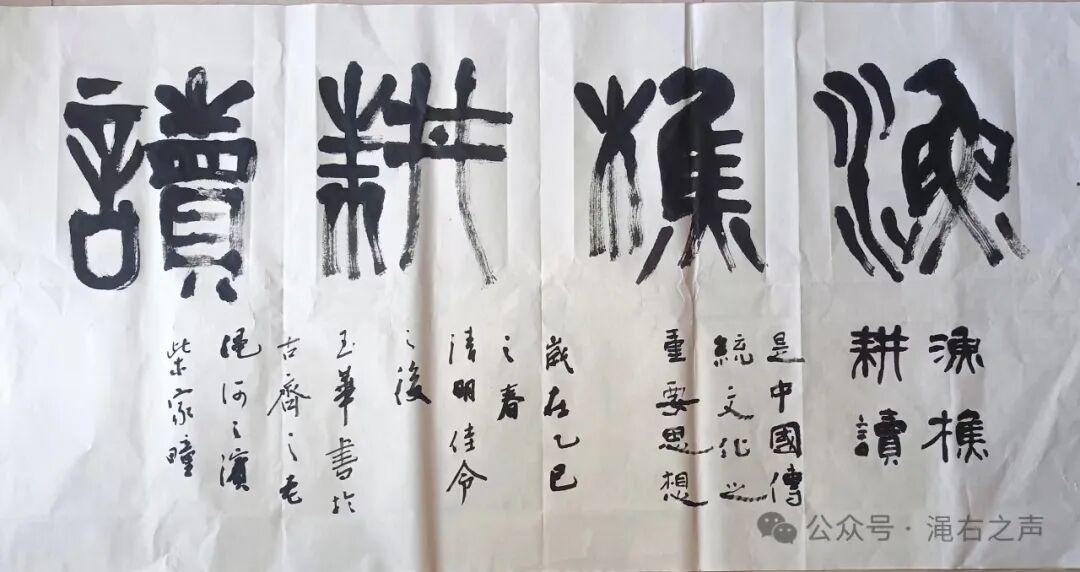 漁樵耕讀
漁樵
耕讀
是中國傳
統文化之
重要思想
歲在乙巳
之春
清明佳令
之後
玉華書於
古齊之
澠河之濱
柴家疃
公众号·渑右之声